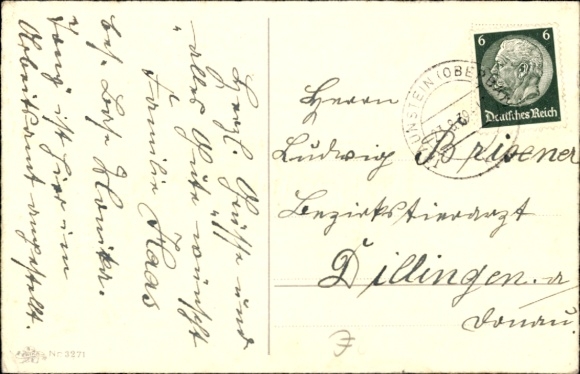 Herzl. Grüße und
alles Gute wünscht
Familie Haas
bes. Lore
ist hier im
Arbeitsamt angestellt.
Nr. 3271
6 6
Deutsches Reich
Herrn
Ludwig Brisener
Bezirkstierarzt
Dillingen a
Donau.